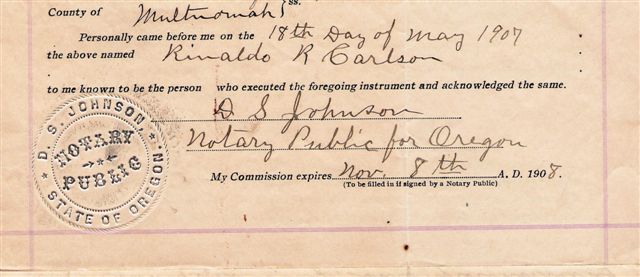 County of Multnomah } ss.
Personally came before me on the 18th Day of May 1907
the above named Rinaldo R Carlson
to me known to be the person who executed the foregoing instrument and acknowledged the same.
D S Johnson
Notary Public for Oregon
My Commission expires Nov. 8th A. D. 1908.
(To be filled in if signed by a Notary Public)
D. S. JOHNSON
NOTARY
PUBLIC
STATE OF OREGON